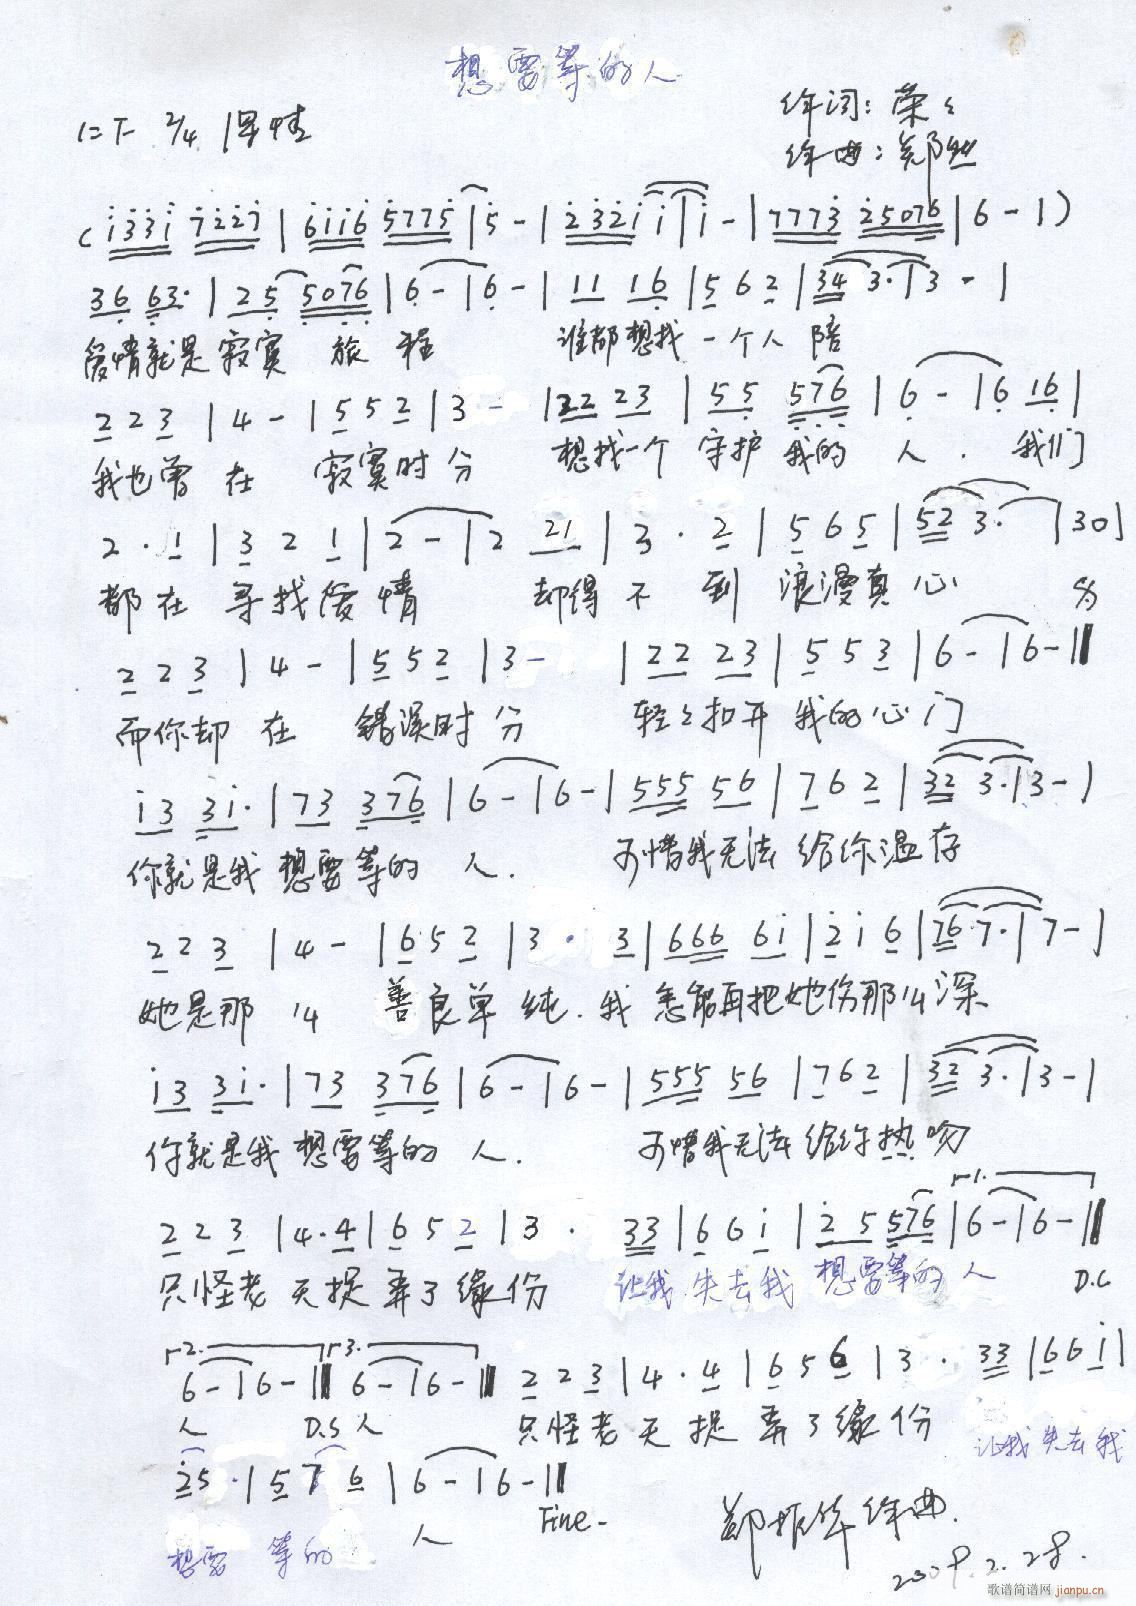 想要等的人
1=F 2/4 深情
作词：荣荣
作曲：郑
( i33i 7227 | 6116 5775 | 5 - | 2321 i | i - | 7773 25076 | 6 - | )
36 63· | 25 5076 | 6 - | 6 - | 11 16 | 5 6 2 | 34 3· | 3 - |
爱情就是寂寞 旅 程 谁都想找一个人 陪
2 2 3 | 4 - | 5 5 2 | 3 - | 22 23 | 55 576 | 6 - | 6 16 |
我也曾 在 寂寞时分 想找一个 守护 我的 人. 我们
2 · 1 | 3 2 1 | 2 - | 2 21 | 3 · 2 | 5 6 5 | 52 3· | 30 |
都在 寻找爱 情 却得 不 到 浪漫真 心
2 2 3 | 4 - | 5 5 2 | 3 - | 22 23 | 5 5 3 | 6 - | 6 - ||
而你却 在 错误时 分 轻轻扣开 我的心门
i3 3i· | 73 376 | 6 - | 6 - | 555 56 | 7 6 2 | 32 3· | 3 - |
你就是我 想要等的 人. 可惜我无法 给你温存
2 2 3 | 4 - | 6 5 2 | 3 · 3 | 666 6i | 2 i 6 | 76 7· | 7 - |
她是那 么 善良单 纯. 我 怎能再把她伤那么深
i3 3i· | 73 376 | 6 - | 6 - | 555 56 | 7 6 2 | 32 3· | 3 - |
你就是我 想要等的 人. 可惜我无法 给你热吻
2 2 3 | 4 · 4 | 6 5 2 | 3 · 33 | 6 6 i | 25 576 | 1. 6 - | 6 - ||
只怪老 天捉 弄了缘 份 让我 失去我 想要等的 人 D.C
2. 6 - | 6 - || 3. 6 - | 6 - || 2 2 3 | 4 · 4 | 6 5 6 | 3 · 33 | 6 6 i |
人 D.S 人 只怪老 天 捉 弄了缘 份 让我 失去我
25 · | 5 7 6 | 6 - | 6 - ||
想要 等的 人 Fine-
郑振华作曲.
2009.2.28.
歌谱简谱网 jianpu.cn